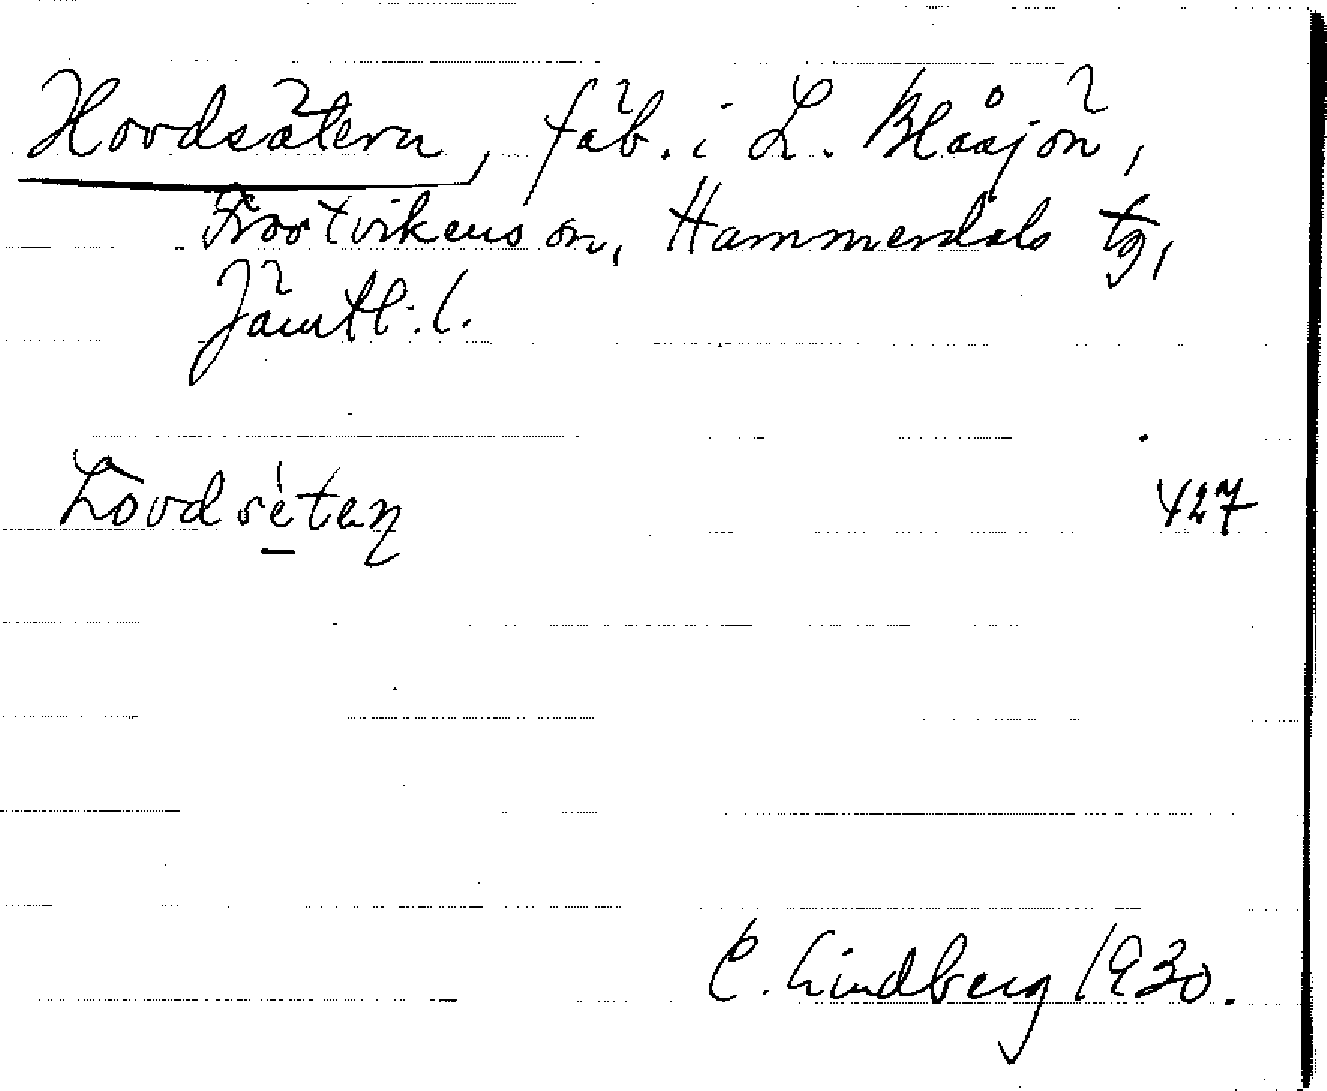 Hovdsätern, fäb. i L. Blåsjön,
Frostvikens sn, Hammerdals tg,
Jämtl:l.
427
C. Lindberg 1930.